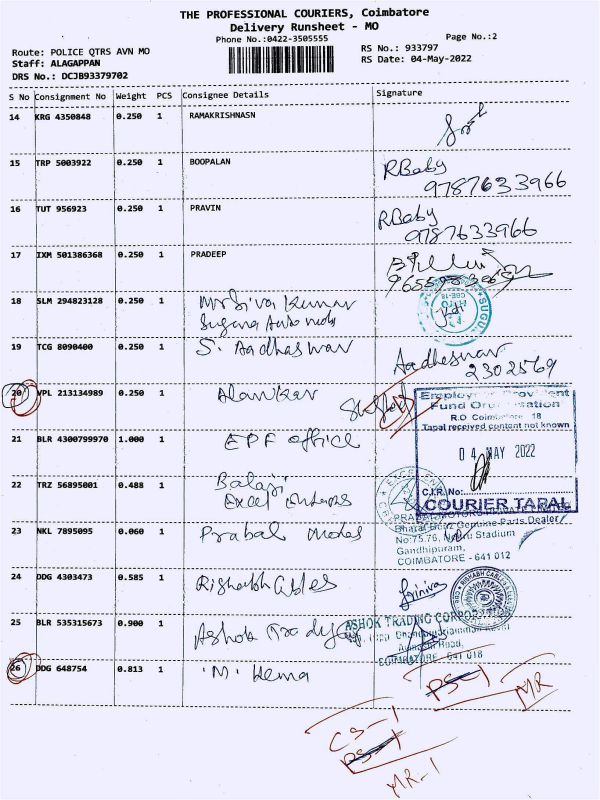 THE PROFESSIONAL COURIERS, Coimbatore
Delivery Runsheet - MO
Phone No.:0422-3505555
Page No.:2
Route: POLICE QTRS AVN MO
RS No.: 933797
Staff: ALAGAPPAN
RS Date: 04-May-2022
DRS No.: DCJB93379702
S No Consignment No Weight PCS Consignee Details Signature
14 KRG 4350848 0.250 1 RAMAKRISHNASN
15 TRP 5003922 0.250 1 BOOPALAN RBaby
9787633966
16 TUT 956923 0.250 1 PRAVIN RBaby
9787633966
17 IXM 501386368 0.250 1 PRADEEP
18 SLM 294823128 0.250 1 Mr Siva Kumar
Suguna Auto
19 TCG 8090400 0.250 1 S. Aadhaswar Aadheswar
2302569
20 VPL 213134989 0.250 1 Alankar
Employees Provident
Fund Organisation
R.O Coimbatore 18
Tapal received content not known
21 BLR 4300799970 1.000 1 EPF office
04 MAY 2022
22 TRZ 56895001 0.488 1 Balaji
Excel
C.I.R. No:
COURIER TAPAL
23 NKL 7895095 0.060 1 Prabal Motors
PRABAL MOTORS
Bharat Benz Genuine Parts Dealer
No:75,76, Nehru Stadium
Gandhipuram,
COIMBATORE - 641 012
24 DDG 4303473 0.585 1 Rishabh Cables
25 BLR 535315673 0.900 1 Ashok Trading
ASHOK TRADING CORPORATION
Road,
COIMBATORE - 641 018
26 DDG 648754 0.813 1 M. Hema
PS-1
MR
CS-1
PS-1
MR-1